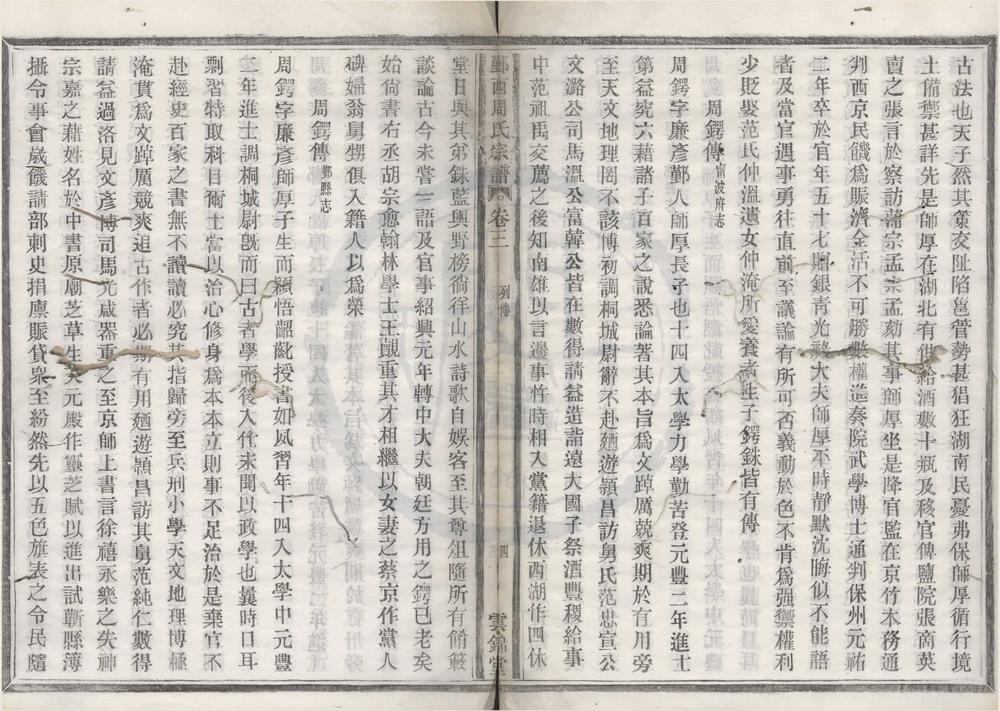 古法也天子然其策交阯陷邕管勢甚猖狂湖南民憂弗保師厚循行境
土備禦甚詳先是師厚在湖北有供給酒數十瓶及移官俾鹽院張商英
賣之張言於察訪蒲宗孟宗孟劾其事師厚坐是降官監在京竹木務通
判西京民饑爲賑濟全活不可勝數權進奏院武學博士通判保州元祐
二年卒於官年五十七贈銀青光祿大夫師厚平時靜默沈晦似不能語
者及當官遇事勇往直前至議論有所可否義動於色不肯爲强禦權利
少貶娶范氏仲溫遺女仲淹所愛養者姓子鍔銖皆有傳
周鍔傳甯波府志
周鍔字廉彥鄞人師厚長子也十四入太學力學勤苦登元豐二年進士
第益究六藉諸子百家之說悉論著其本旨爲文踔厲兢爽期於有用旁
至天文地理罔不該博初調桐城尉辭不赴廼遊潁昌訪舅氏范忠宣公
文潞公司馬溫公富韓公皆在數得請益造詣遠大國子祭酒豐稷給事
中范祖禹交薦之後知南雄以言邊事忤時相入黨籍退休西湖作四休
鄞西周氏宗譜 卷三 列傳 四 雲錦堂
堂日與其弟銖藍輿野榜徜徉山水詩歌自娛客至其尊俎隨所有餚蔌
談論古今未嘗一語及官事紹興元年轉中大夫朝廷方用之鍔已老矣
始尙書右丞胡宗愈翰林學士王覿重其才相繼以女妻之蔡京作黨人
碑婦翁舅甥俱入籍人以爲榮
周鍔傳鄞縣志
周鍔字廉彥師厚子生而穎悟齠齔授書如夙習年十四入太學中元豐
二年進士調桐城尉旣而曰古者學而後入仕未聞以政學也曩時口耳
剽習特取科目爾士當以治心修身爲本本立則事不足治於是棄官不
赴經史百家之書無不讀讀必究其指歸旁至兵刑小學天文地理博極
淹貫爲文踔厲競爽追古作者必期有用廼遊潁昌訪其舅范純仁數得
請益過洛見文彥博司馬光咸器重之至京師上書言徐禧永樂之失神
宗嘉之藉姓名於中書原廟芝草生天元殿作靈芝賦以進出試蘄縣簿
攝令事會歲饑請部刺史捐廪賑貸衆至紛然先以五色旗表之令民隨